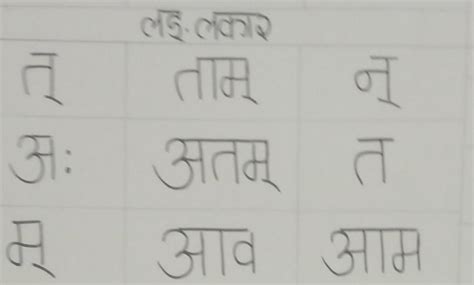 लङ्. लकार
त् ताम् न्
अः अतम् त
म् आव आम